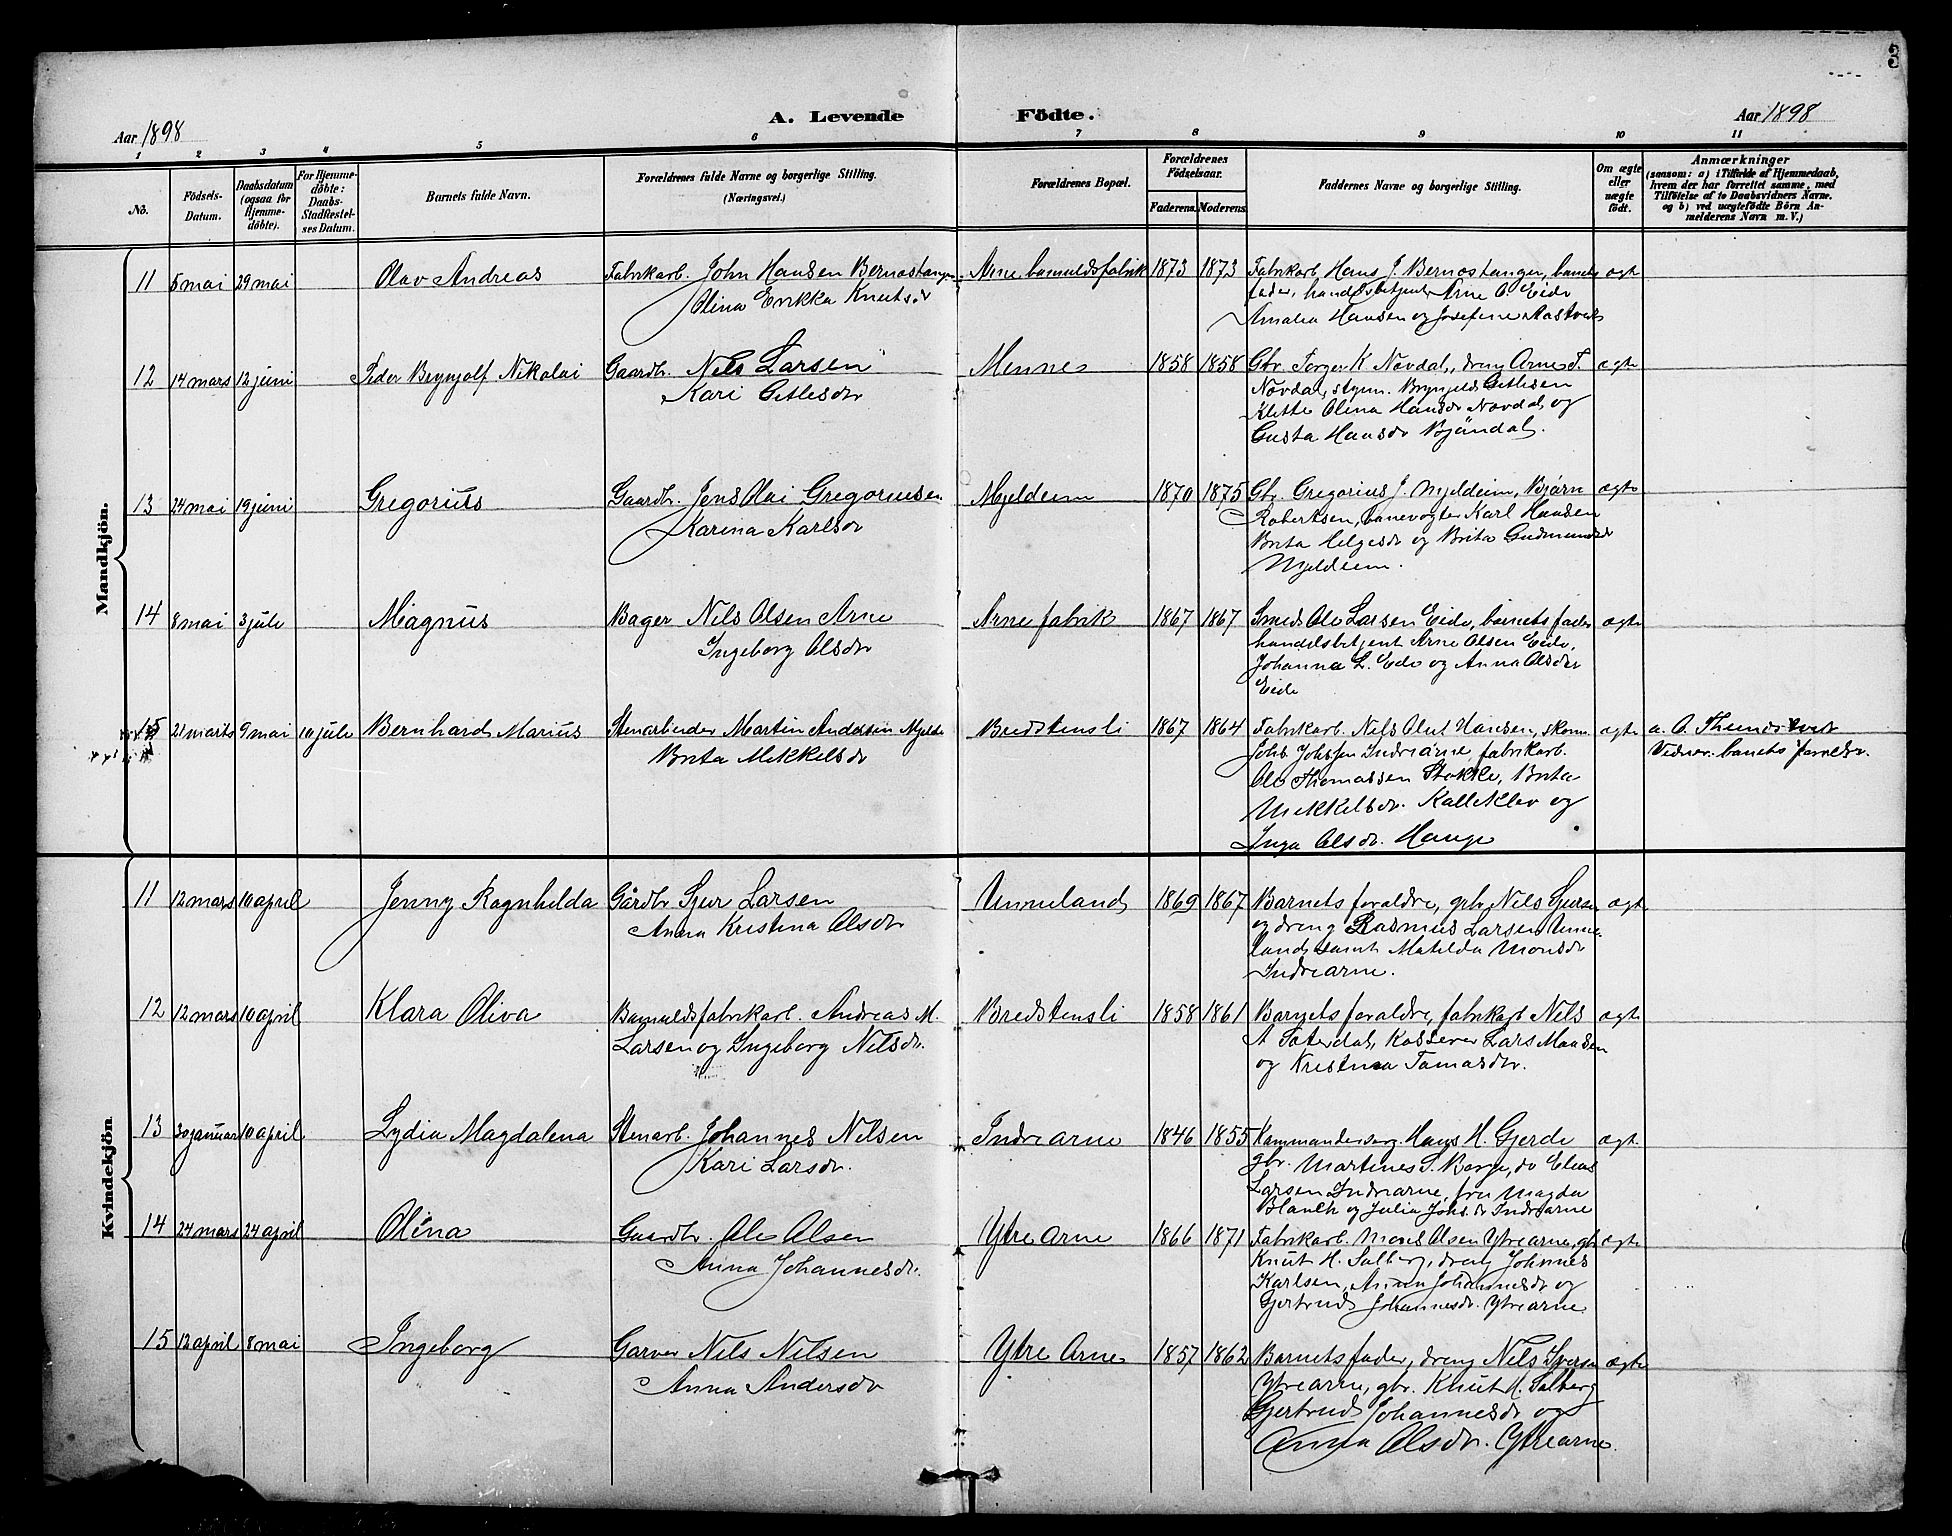 3
A. Levende Födte.
Aar 1898
Aar 1898
1 2 3 4 5 6 7 8 9 10 11
No.
Födsels-Datum.
Daabsdatum (ogsaa for Hjemme-döbte).
For Hjemme-döbte: Daabs-Stadfæstel-ses Datum.
Barnets fulde Navn.
Forældrenes fulde Navne og borgerlige Stilling. (Næringsvei.)
Forældrenes Bopæl.
Forældrenes Födselsaar.
Faderens. Moderens.
Faddernes Navne og borgerlige Stilling.
Om ægte eller uægte födt.
Anmærkninger
(saasom: a) i Tilfælde af Hjemmedaab,
hvem der har forrettet samme, med
Tilföielse af to Daabsvidners Navne.
og b) ved uægtefödte Börn An-
melderens Navn m. V.)
Mandkjön.
11 5 mai 29 mai Olav Andreas Fabrikarb. John Hansen Bernestangen Arne bomuldsfabrik 1873 1873 Fabrikarb. Hans J. Bernestangen, barnets ægte
Olina Erikka Knutsdr
fader, handelsbetjent Arne O. Eide
Amalia Hansen og Josefine
12 14 mars 12 juni Peder Brynjolf Nikolai Gaardbr. Nils Larsen Menne 1858 1858 Gbr. Torger K. Növdal, dreng Arne T. ægte
Kari Getlesdr
Növdal, Brynjulf Getlesen
Klette Olina Hansdr Növdal og
Gusta Hansdr Björndal.
13 24 mai 19 juni Gregorius Gaardbr. Jens Olai Gregoriussen Mjeldeim 1870 1875 Gbr. Gregorius J. Mjeldeim, Bjørn ægte
Karina Karlsdr
Robertsen, banevogter Karl Hansen
Brita Helgesdr og Brita Gudmundsdr
Mjeldeim.
14 8 mai 3 juli Magnus Bager Nils Olsen Arne Arne fabrik 1867 1867 Smed Ole Larsen Eide, barnets fader ægte
Ingeborg Olsdr
handelsbetjent Arne Olsen Eide,
Johanna L. Eide og Anna Olsdtr
Eide
15 21 marts 9 mai 10 juli Bernhard Marius Stenarbeider Martin Andersen Mjelde Bredstensli 1867 1864 Fabrikarb. Nils Olut Hansen, skom. ægte a. O. Thunestvet
Brita Mikkelsdr
Johs. Johssen Indrearne, fabrikarb.
Vidner: barnets forældre.
Ole Thomassen Stokke, Brita
Mikkelsdr. Kalleklev og
Inga Olsdr. Hauge
Kvindekjön
11 12 mars 10 april Jenny Ragnhilda Gårdbr Sjur Larsen Unneland 1869 1867 Barnets foraldre, gbr Nils Sjursen ægte
Anna Kristina Olsdr
og dreng Rasmus Larsen Unne-
land samt Matilda Monsdr
Indrearne.
12 12 mars 10 april Klara Oliva Bomuldsfabrikarb. Andreas M. Bredstensli 1858 1861 Barnets foraldre, fabrikarb Nils ægte
Larsen og Ingeborg Nilsdr.
A Sæterdal, Kasserer Lars Monsen
og Kristina Tomasdtr.
13 30 januar 10 april Lydia Magdalena Stenarb. Johannes Nilsen Indrearne 1846 1855 Kommanderserg. Hans H. Gjerde ægte
Kari Larsdr.
gbr. Martines S. Borge, do Elias
Larsen Indrearne, fru Magda
Blauch og Julia Johs.dr Indrearne
14 24 mars 24 april Olina Gaardbr. Ole Olsen Ytre Arne 1866 1871 Fabrikarb. Mons Olsen Ytrearne, gbr ægte
Anna Johannesdr.
Knut H. Salberg, dreng Johannes
Karlsen, Anna Johannesdr og
Gjertrud Johannesdr. Ytrearne
15 12 april 8 mai Ingeborg Garver Nils Nilsen Ytre Arne 1857 1862 Barnets fader, dreng Nils Iversen ægte
Anna Andersdr
Ytrearne, gbr. Knut H. Salberg
Gjertrud Johannesdr og
Anna Olsdr. Ytrearne.